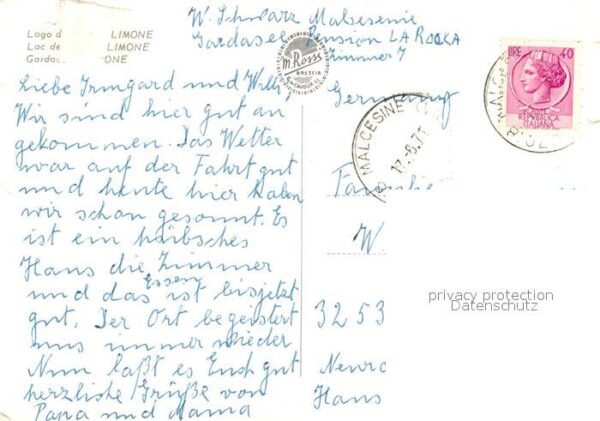 W. Schwarz Malsesenie
Gardasee Pension LA ROCCA
Zimmer 7
Germany
Lago d LIMONE
Lac de LIMONE
Gardas ONE
m. Rossi
BRESCIA
LIRE 40
REPVBBLICA
ITALIANA
MALCESINE
17.-5.71
Liebe Irmgard und Willi,
Wir sind hier gut an
gekommen. Das Wetter
war auf der Fahrt gut
und heute hier haben
wir schon gesonnt. Es
ist ein hübsches
Haus die Zimmer
und das Essen ist bisjetzt
gut. Der Ort begeistert
uns immer wieder
Nun laßt es Euch gut
herzliche Grüße von
Papa und Mama
Familie
W
3253
Haus
privacy protection
Datenschutz